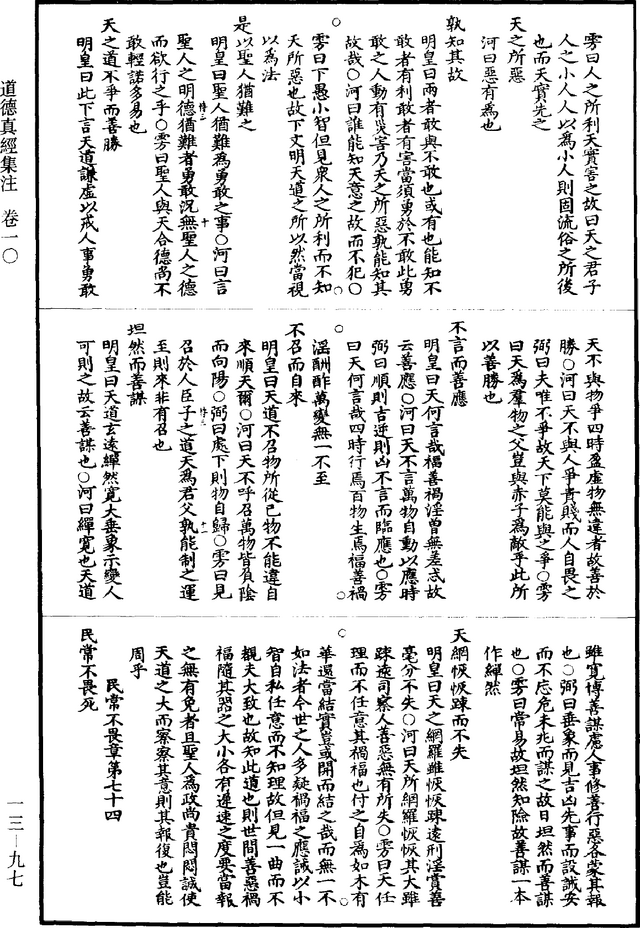 雱曰人之所利天實害之故曰天之君子
人之小人人以爲小人則固流俗之所後
也而天實先之
天之所惡
河曰惡有爲也
孰知其故
明皇曰兩者敢與不敢也或有也能知不
敢者有利敢者有害當須勇於不敢此勇
敢之人動有災害乃天之所惡孰能知其
故哉○河曰誰能知天意之故而不犯○
雱曰下愚小智但見衆人之所利而不知
天所惡也故下文明天道之所以然當視
以爲法
是以聖人猶難之
明皇曰聖人猶難爲勇敢之事○河曰言
聖人之明德猶難者勇敢況無聖人之德
而欲行之乎○雱曰聖人與天合德尚不
敢輕諾多易也
天之道不爭而善勝
明皇曰此下言天道謙虛以戒人事勇敢
天不與物爭四時盈虛物無違者故善於
勝○河曰天不與人爭貴賤而人自畏之
弼曰夫唯不爭故天下莫能與之爭○雱
曰天爲羣物之父豈與赤子爲敵乎此所
以善勝也
不言而善應
明皇曰天何言哉福善禍淫曾無差忒故
云善應○河曰天不言萬物自動以應時
弼曰順則吉逆則凶不言而臨應也○雱
曰天何言哉四時行焉百物生焉福善禍
淫酬酢萬變無一不至
不召而自來
明皇曰天道不召物所從已物不能違自
來順天爾○河曰天不呼召萬物皆負陰
而向陽○弼曰處下則物自歸○雱曰見
召於人臣子之道天爲君父孰能制之運
至則來非有召也
坦然而善謀
明皇曰天道玄遠繟然寬大垂象示變人
可則之故云善謀也○河曰繟寬也天道
雖寬博善謀慮人事修善行惡各蒙其報
也○弼曰垂象而見吉凶先事而設誡安
而不忘危未兆而謀之故曰坦然而善謀
也○雱曰常易故坦然知險故善謀一本
作繟然
天網恢恢踈而不失
明皇曰天之網羅雖恢恢踈遠刑淫賞善
毫分不失○河曰天所網羅恢恢其大雖
踈遠司察人善惡無有所失○雱曰天任
理而不任意其禍福也付之自爲如木有
華還當結實豈或開而結之哉而無一不
如法者今世之人多疑禍福之應誠以小
智自私任意而不知理故但見一曲而不
覩夫大致也故知此道也則世間善惡禍
福隨其器之大小各有遲速之度要當報
之無有免者且聖人爲政尚貴悶悶誠使
天道之大而察察其意則其報復也豈能
周乎
民常不畏章第七十四
民常不畏死
道德真經集注　卷一〇
一三—九七